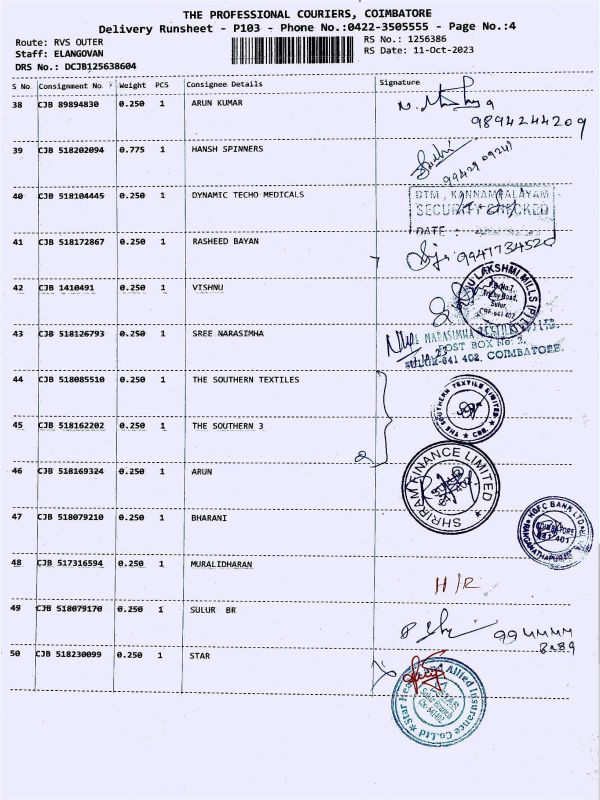 THE PROFESSIONAL COURIERS, COIMBATORE
Delivery Runsheet - P103 - Phone No.:0422-3505555 - Page No.:4
Route: RVS OUTER
RS No.: 1256386
Staff: ELANGOVAN
RS Date: 11-Oct-2023
DRS No.: DCJB125638604
S No Consignment No Weight PCS Consignee Details Signature
38 CJB 89894830 0.250 1 ARUN KUMAR
9894244209
39 CJB 518202094 0.775 1 HANSH SPINNERS
99429 09247
40 CJB 518104445 0.250 1 DYNAMIC TECHO MEDICALS
DTM, KANNAMPALAYAM
SECURITY CHECKED
DATE :
41 CJB 518172867 0.250 1 RASHEED BAYAN
9947734520
42 CJB 1410491 0.250 1 VISHNU
LAKSHMI MILLS (P) LTD
P.B.No.7,
Trichy Road,
Sulur,
CBE-641 402
43 CJB 518126793 0.250 1 SREE NARASIMHA
NARASIMHA TEXTILES (P) LTD.
POST BOX No: 3,
SULUR-641 402, COIMBATORE.
44 CJB 518085510 0.250 1 THE SOUTHERN TEXTILES
THE SOUTHERN TEXTILE LIMITED
CBE.
45 CJB 518162202 0.250 1 THE SOUTHERN 3
46 CJB 518169324 0.250 1 ARUN
SHRIRAM FINANCE LIMITED
47 CJB 518079210 0.250 1 BHARANI
HDFC BANK LTD
COIMBATORE
641 401
48 CJB 517316594 0.250 1 MURALIDHARAN
H/R
49 CJB 518079170 0.250 1 SULUR BR
8289
50 CJB 518230099 0.250 1 STAR
Star Health Allied Insurance Co.Ltd
Sulur Branch